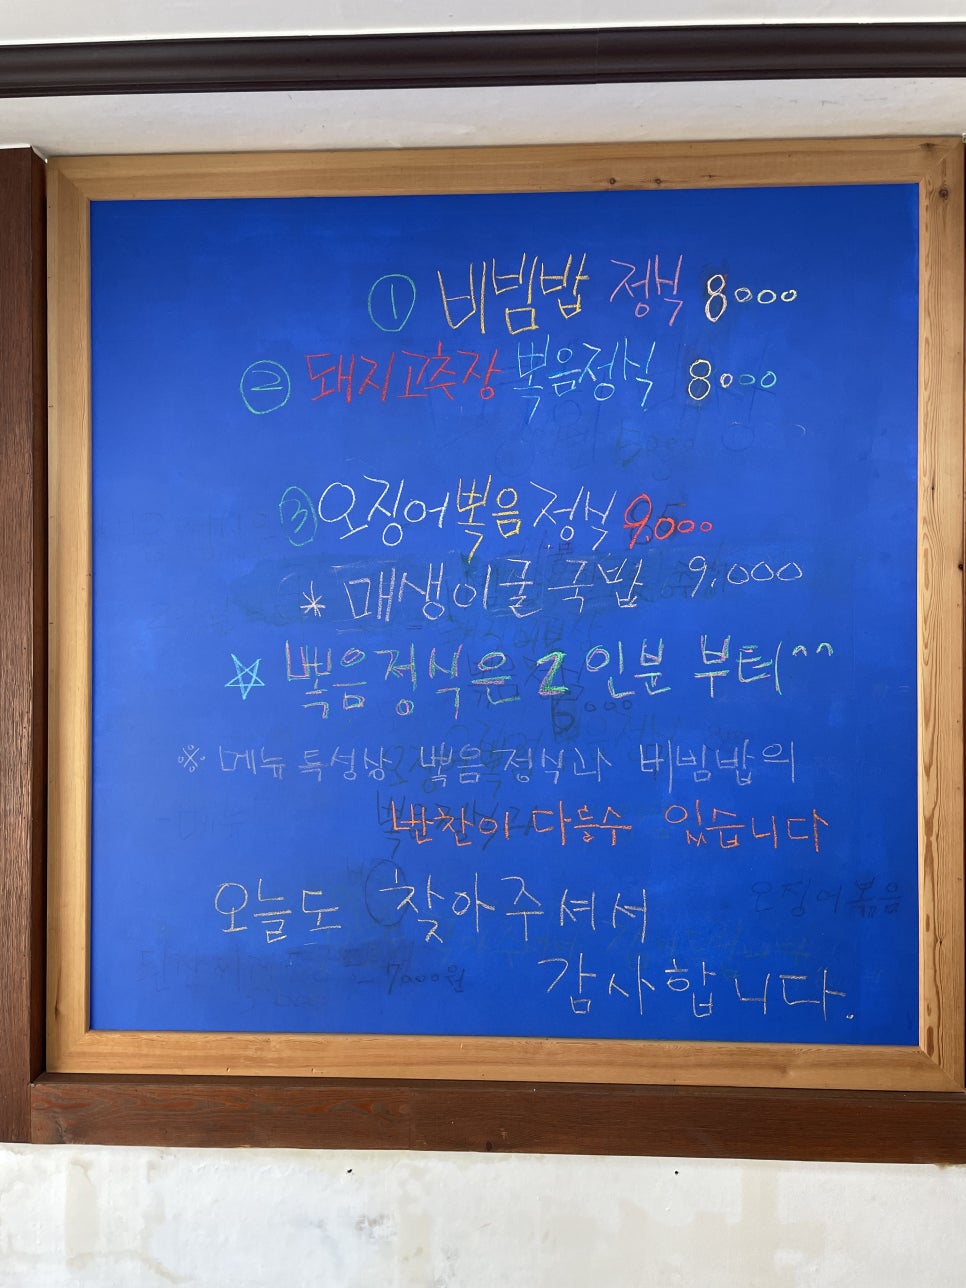 ① 비빔밥 정식 8000
② 돼지고추장 볶음정식 8000
③ 오징어볶음 정식 9,000
* 매생이굴국밥 9,000
☆ 볶음정식은 2인분 부터^^
※ 메뉴 특성상 볶음정식과 비빔밥의
반찬이 다를수 있습니다
오늘도 찾아주셔서
감사합니다.
오징어볶음
7000원